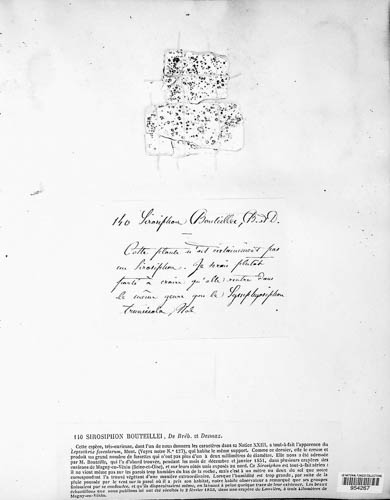 140 Sirosiphon Bouteillei, B. et D.
Cette plante n'est certainement pas
un Sirosiphon. Je serais plutôt
porté à croire qu'elle rentre dans
le même genre que le
truncicola,
140 SIROSIPHON BOUTEILLEI, De Bréb. et Desmaz.
Cette espèce, très-curieuse, dont l'un de nous donnera les caractères dans sa Notice XXIII, a tout-à-fait l'apparence du
Mont. (Voyez notre N.° ), qui habite le même support. Comme ce dernier, elle le creuse et
produit un grand nombre de fossettes qui n'ont pas plus d'un à deux millimètres de diamètre. Elle nous a été adressée
par M. Bouteille, qui l'a d'abord trouvée, pendant les mois de décembre et janvier 1851, dans plusieurs carrières des
environs de Magny-en-Vexin (Seine-et-Oise), et sur leurs côtés mais exposés au nord. Ce Sirosiphon est tout-à-fait aérien:
il ne vient même pas sur les parois trop humides du bas de la roche, mais c'est à un mètre ou deux du sol que
correspondant l'a trouvé végétant d'une manière extraordinaire. Lorsque l'humidité est trop grande, par suite de la
pluie poussée par le vent sur la paroi où il a pris son habitat, notre habile observateur a remarqué que ses groupes
finissaient par se confondre, et qu'ils disparaissaient même, en laissant à peine quelque trace de leur existence. Les beaux
échantillons que nous publions ici ont été récoltés le 9 février 1852, dans une carrière, à trois kilomètres de
Magny-en-Vexin.
954267